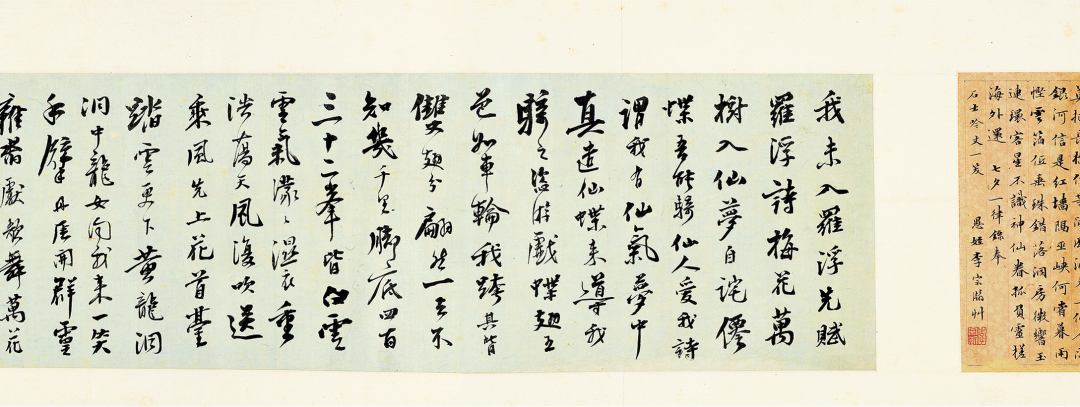 銀河信是紅墻隔巫峽何嘗暮雨
慳雲 位垂珠錯落洞房微響玉
連環客星不識神仙眷孤負靈槎
海外還 七夕一律錄奉
石士 丈一笑 姪李
我未入羅浮先賦
羅浮詩梅花萬
樹入仙夢自詫僊
蝶吾能騎仙人愛我詩
謂我有仙氣夢中
真遣仙蝶來導我
騎之恣游戲蝶翅五
色如車輪我跨其背
雙翅分翩然一去不
知幾千里腳底四百
三十二峯皆白雲
雲氣濛〻濕衣重
浩蕩天風復吹送
乘風先上花首臺
踏雲更下黃龍洞
洞中龍女向我來一笑
手擘丹厓開群靈
雜 獻歌舞萬花